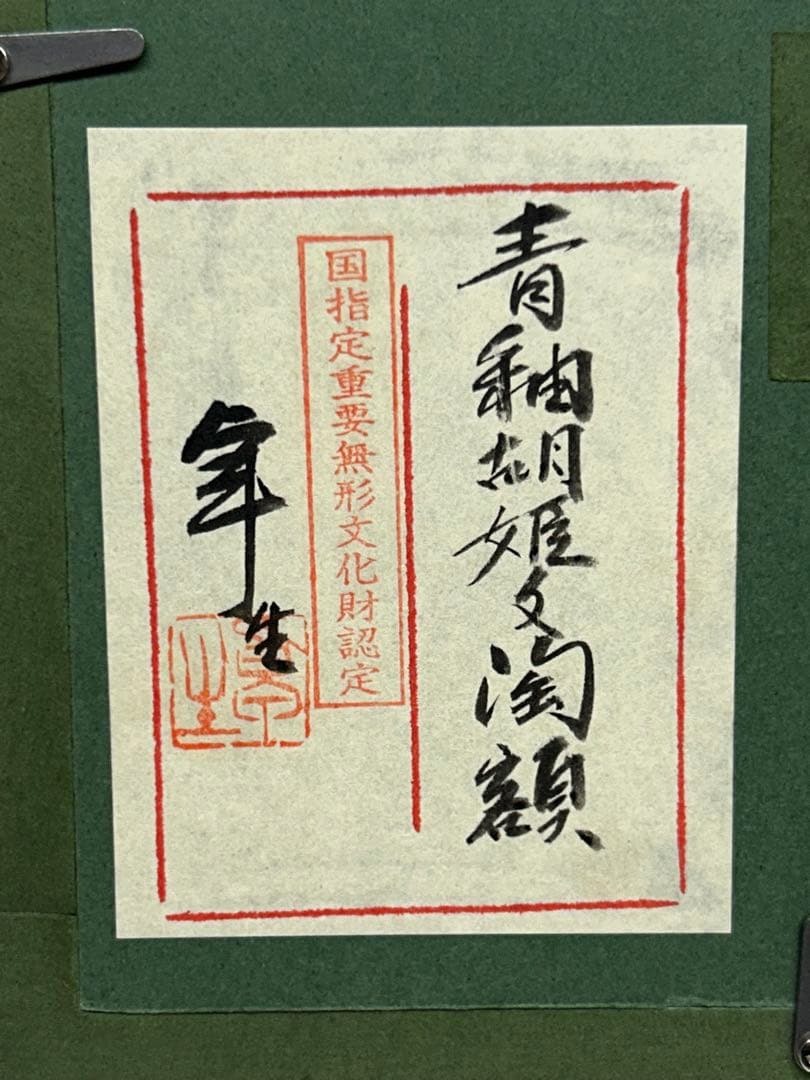 青釉胡姫文陶額
国指定重要無形文化財認定
卓生